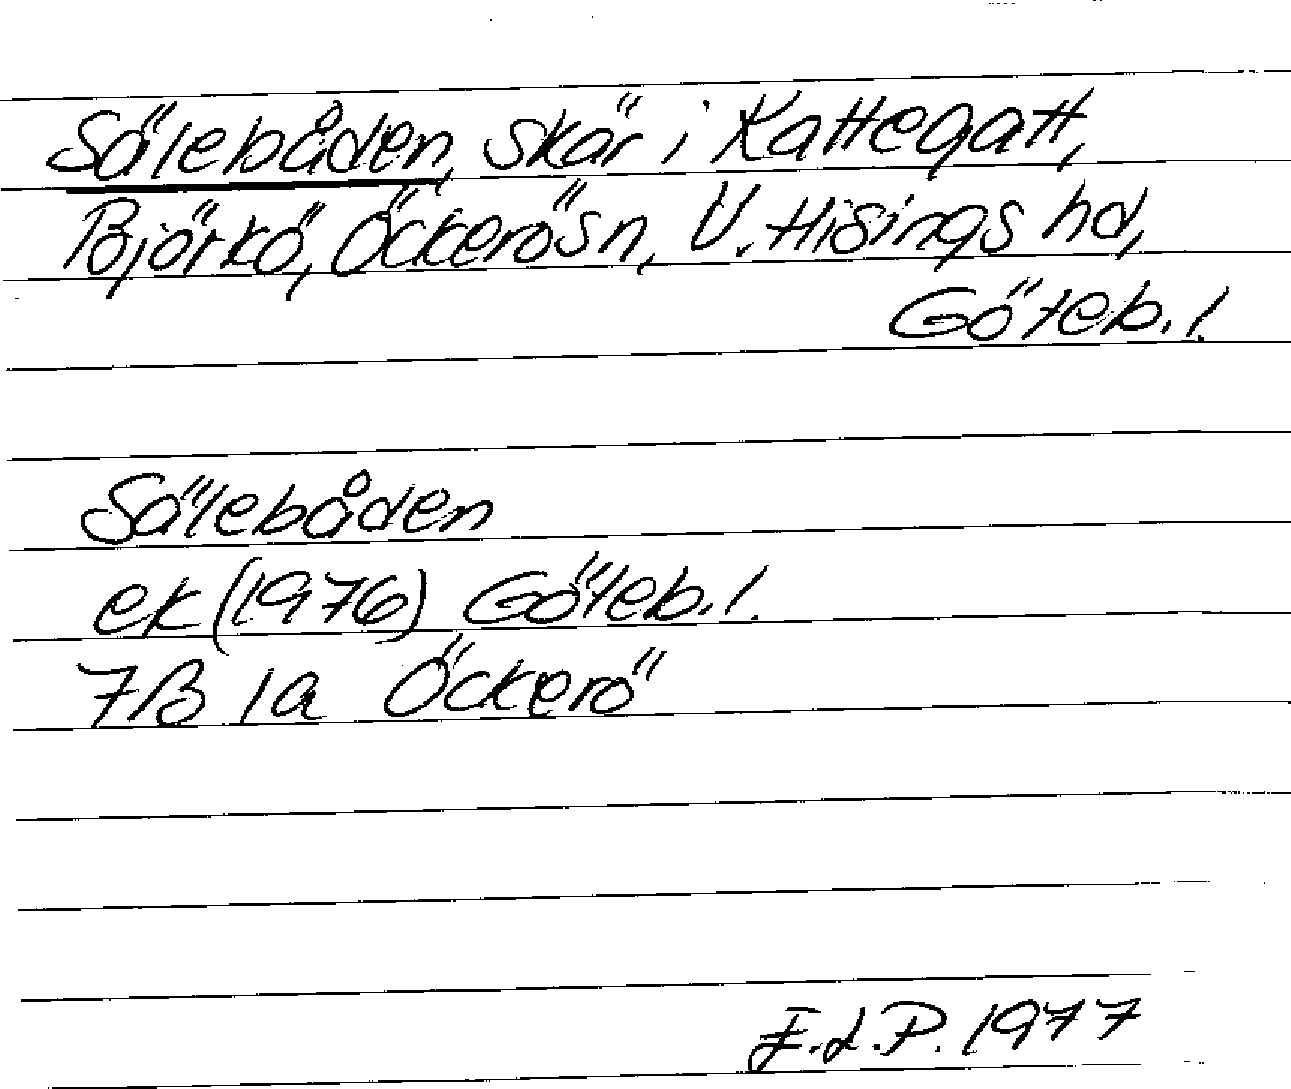 Sälebåden, skär i Kattegatt,
Björkö, Öckerö sn, V. Hisings hd,
Göteb. l.
Sälebåden
ek (1976) Göteb. l.
7B 1a Öckerö
E.L.P. 1977